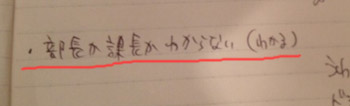 ・部長か課長かわからない(わかる)